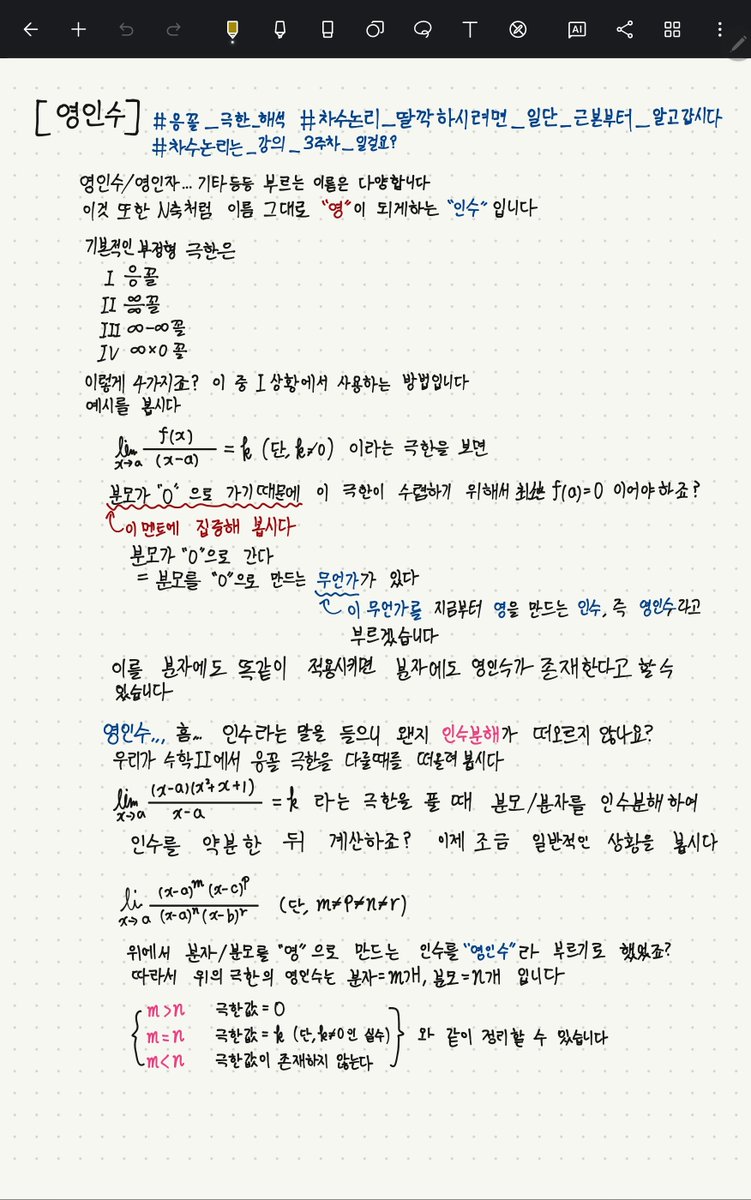 [영인수] #응꼴_극한_해석 #차수논리_딸깍하시려면_일단_근본부터_알고갑시다
#차수논리는_강의_3주차_일걸요?
영인수/영인자... 기타등등 부르는 이름은 다양합니다
이것 또한 N축처럼 이름 그대로 "영"이 되게하는 "인수"입니다
기본적인 부정형 극한은
I 0/0 꼴
II ∞/∞ 꼴
III ∞-∞ 꼴
IV ∞×0 꼴
이렇게 4가지죠? 이 중 I 상황에서 사용하는 방법입니다
예시를 봅시다
lim x→a f(x)/(x-a) = k (단, k≠0) 이라는 극한을 보면
분모가 "0"으로 가기때문에 이 극한이 수렴하기 위해서 f(a)=0 이어야하죠?
이 멘트에 집중해 봅시다
분모가 "0"으로 간다
= 분모를 "0"으로 만드는 무언가가 있다
이 무언가를 지금부터 영을 만드는 인수, 즉 영인수라고
부르겠습니다
이를 분자에도 똑같이 적용시키면 분자에도 영인수가 존재한다고 할 수
있습니다
영인수... 흠... 인수라는 말을 들으니 왠지 인수분해가 떠오르지 않나요?
우리가 수학II에서 응꼴 극한을 다룰때를 떠올려 봅시다
lim x→a (x-a)(x²+x+1)/x-a = k 라는 극한을 풀 때 분모/분자를 인수분해 하여
인수를 약분한 뒤 계산하죠? 이제 조금 일반적인 상황을 봅시다
li x→a (x-a)ᵐ(x-c)ᵖ/(x-a)ⁿ(x-b)ʳ (단, m≠p≠n≠r)
위에서 분자/분모를 "영"으로 만드는 인수를 "영인수"라 부르기로 했었죠?
따라서 위의 극한의 영인수는 분자=m개, 분모=n개 입니다
m>n 극한값=0
m=n 극한값=k (단, k≠0인 실수) 와 같이 정리할 수 있습니다
m<n 극한값이 존재하지 않는다